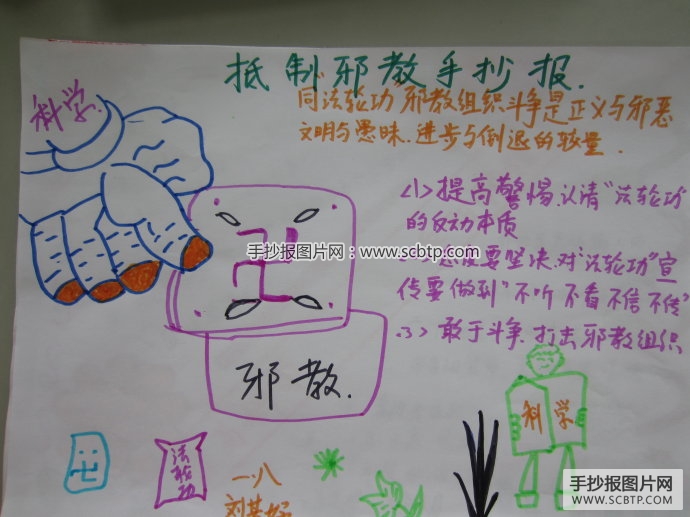 抵制邪教手抄报.
科学.
同法轮功 邪教组织斗争是正义与邪恶
文明与愚昧.进步与倒退的较量.
<1>提高警惕.认清“法轮功”
的反动本质
态度要坚决.对“法轮功”宣
传要做到“不听 不看 不信 不传”
<3>敢于斗争.打击邪教组织
手抄报图片网:www.scbtp.com
手抄报图片网:www.scbtp.com
邪教.
科学
法轮功
一八
手抄报图片网
WWW.SCBTP.COM